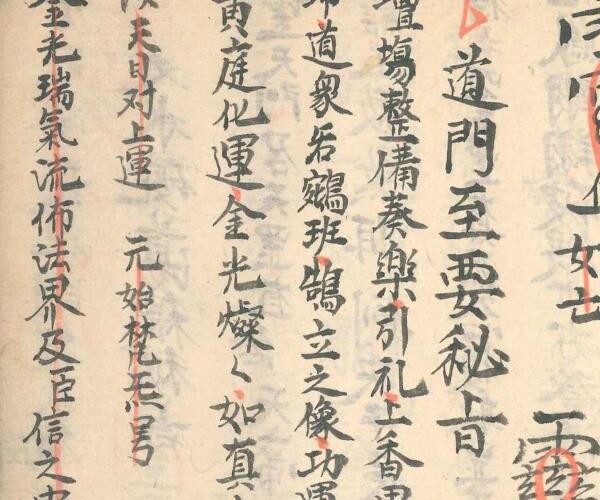 如七
道門至要秘旨
壇場整備奏樂引礼上香
道眾若鵷班鵠立之像功運
寅庭化運金光燦々如真
天目对上運 元始梵炁罩
金光瑞氣流佈法界及臣信之